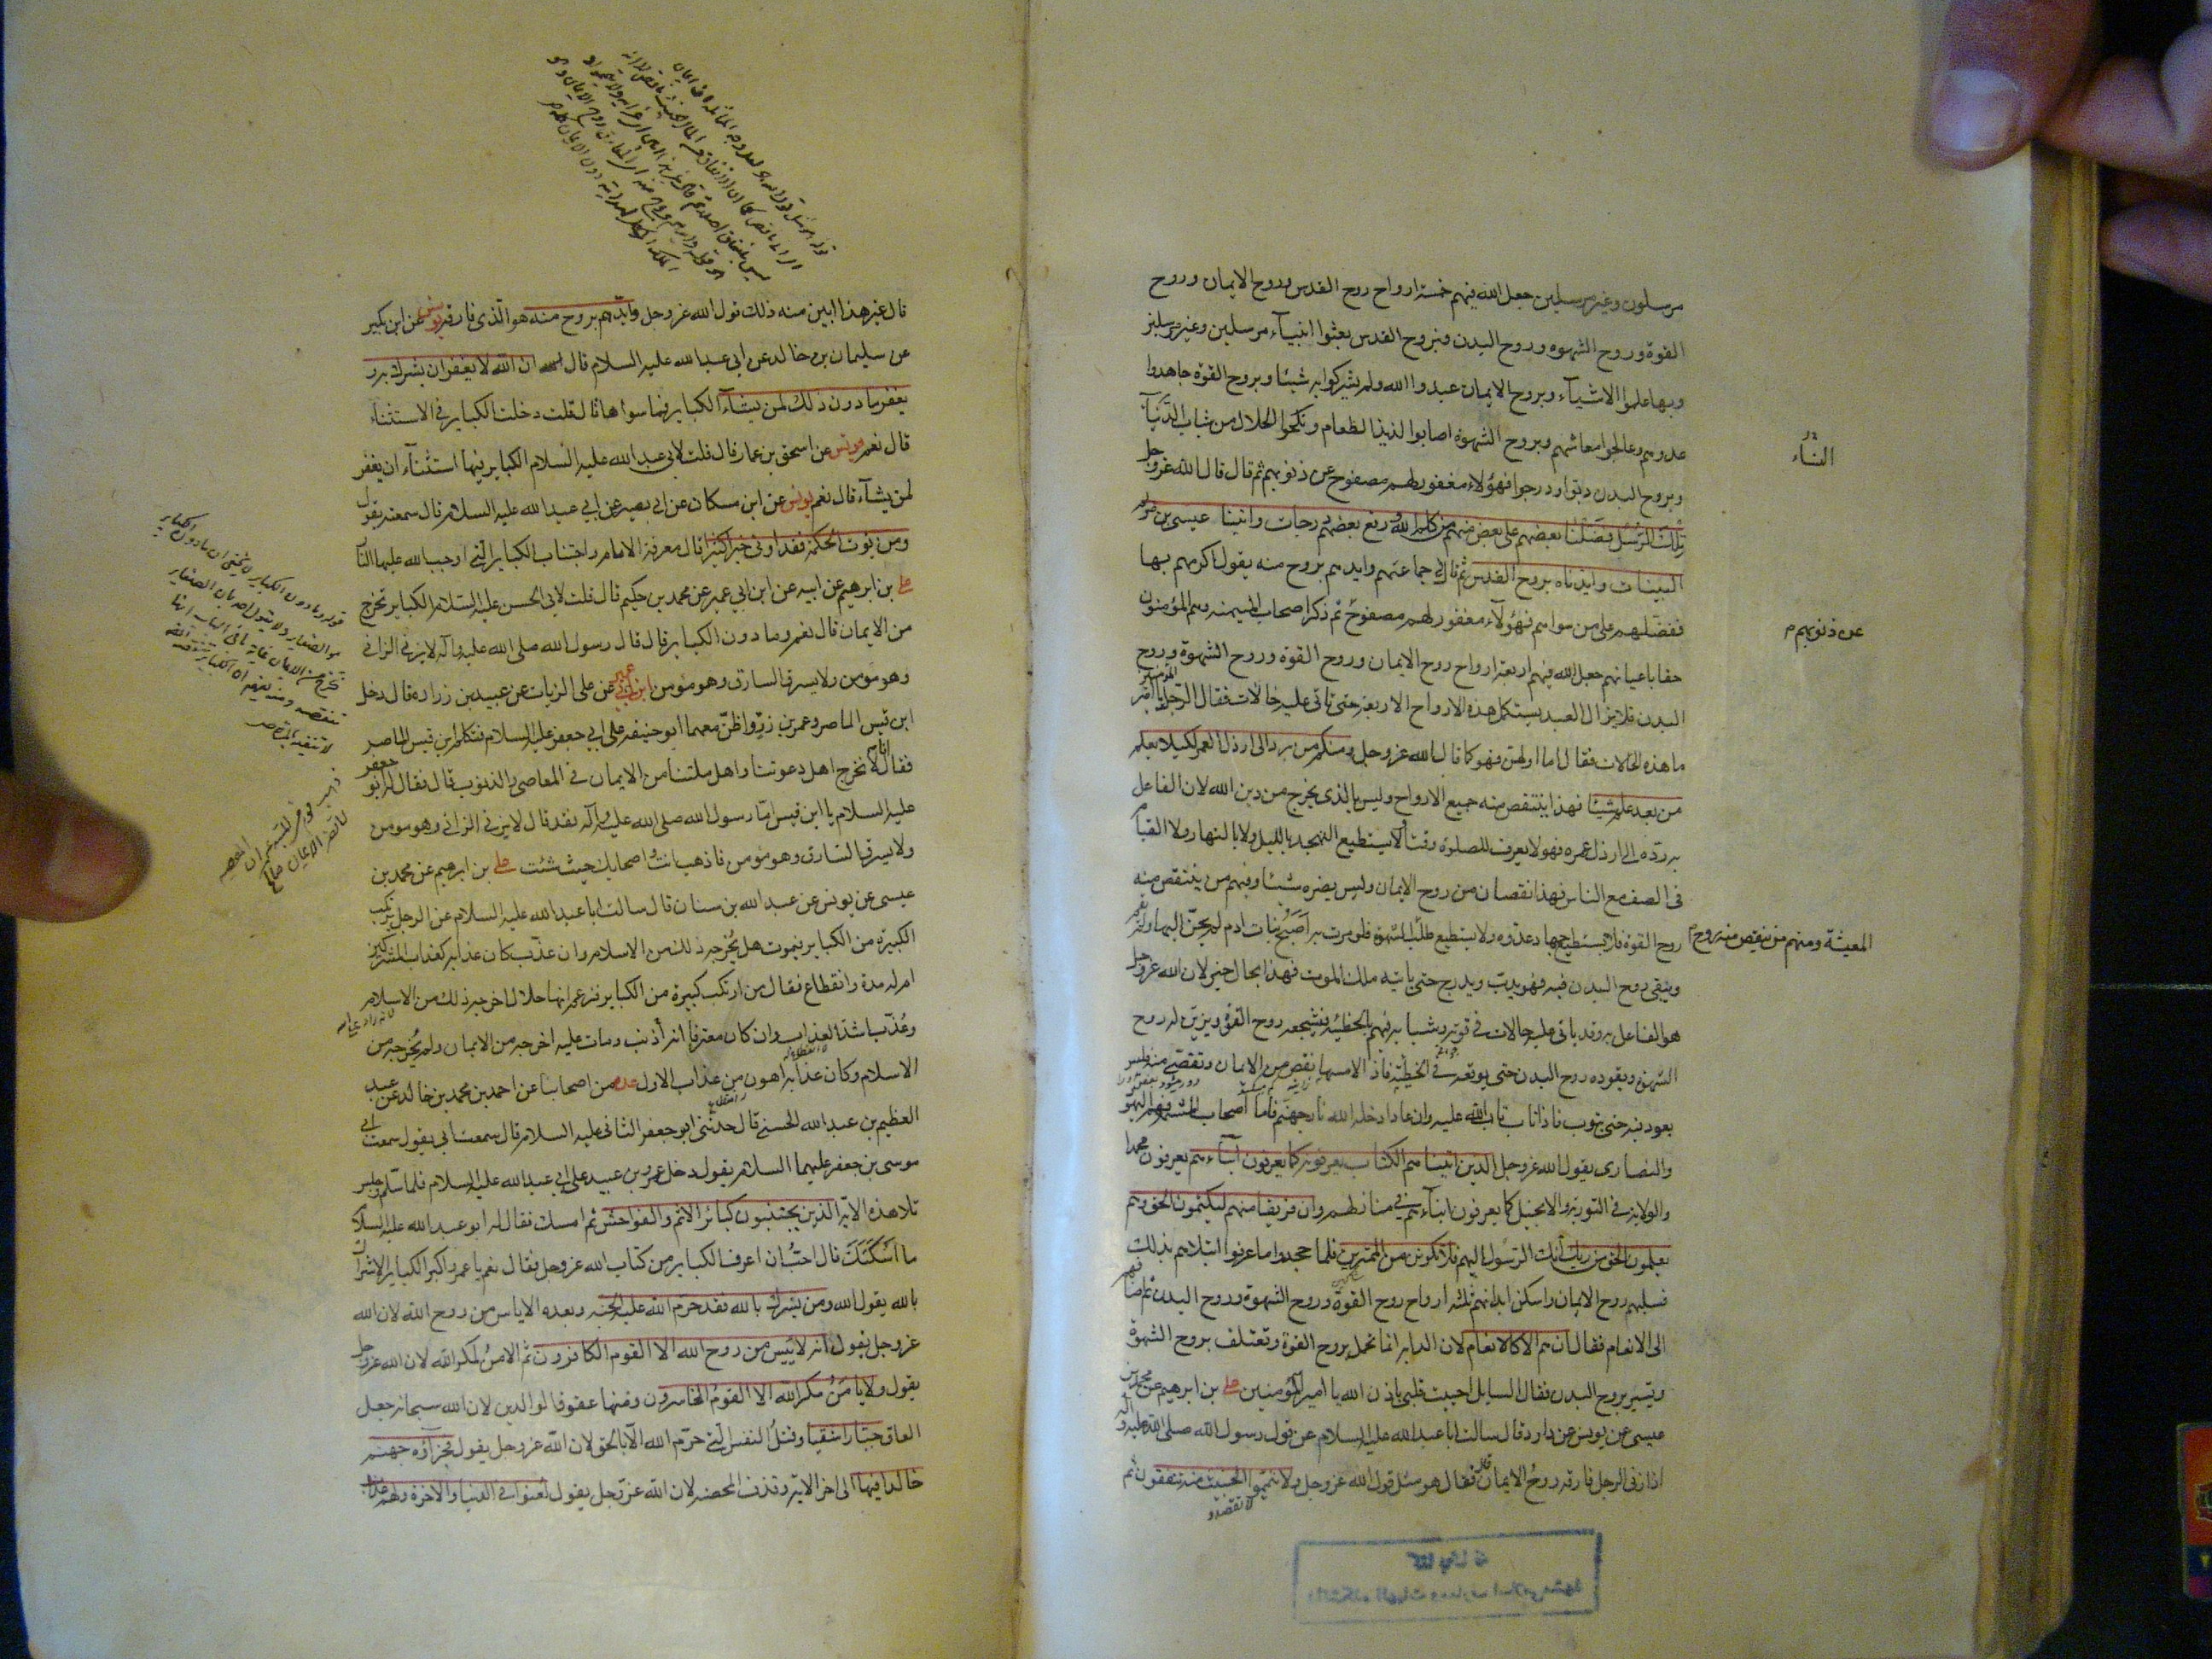 مرسلون وغير مرسلين جعل الله فيهم خمسة ارواح روح القدس وروح الايمان وروح
القوة وروح الشهوه وروح البدن فبروح القدس بعثوا انبيآء مرسلين وغير مرسلين
وبها علموا الاشيآء وبروح الايمان عبدوا الله ولم يشركوا به شيئا وبروح القوة جاهدوا
عدوهم وعالجوا معاشهم وبروح الشهوة اصابوا لذيذ الطعام ونكحوا الحلال من شباب
النسآء
وبروح البدن دبّوا ودرجوا فهؤلاء مغفور لهم مصفوح عن ذنوبهم ثم قال قال الله عزوجل
تلك الرسل فضلنا بعضهم على بعض منهم من كلم الله ورفع بعضهم درجات واتينا عيسى بن مريم
البينات وايدناه بروح القدس ثم قال في جماعتهم وايدهم بروح منه يقول اكرمهم بها
ففضلهم على من سواهم فهؤلآء مغفور لهم مصفوح ثم ذكر اصحاب الميمنه وهم المؤمنون
عن ذنوبهم
حقا باعيانهم جعل الله فيهم اربعة ارواح روح الايمان وروح القوة وروح الشهوة وروح
البدن فلا يزال العبد يستكمل هذه الارواح الاربعة حتى تاتى عليه حالات فقال الرجل يا امير المؤمنين
ما هذه الحالات فقال اما اولهن فهو كما قال الله عز وجل ومنكم من يرد الى ارذل العمر لكيلا يعلم
من بعد علم شيئا فهذا ينتقص منه جميع الارواح وليس بالذى يخرج من دين الله لان الفاعل
به رده الى ارذل عمره فهو لا يعرف للصلوة وقتا ولا يستطيع التهجد بالليل ولا بالنهار ولا القيام
فى الصف مع الناس فهذا نقصان من روح الايمان وليس يضره شيئا وفيهم من ينتقص منه
روح القوة فلا يستطيع جهاد عدوه ولا يستطيع طلب الشهوة فلو مرت به اصبح بنات ادم لم يحنّ اليها ولم يقم
المعيشة ومنهم من ينتقص منه روح
ويبقى روح البدن فيه فهو يدب ويدرج حتى ياتيه ملك الموت فهذا بحال خير لان الله عزوجل
هو الفاعل به وقد ياتى عليه حالات فى قوته وشبابه فيهم بالخطيئه فيشجعه روح القوة ويزين له روح
الشهوة ويقوده روح البدن حتى يوقعه فى الخطيئة فاذا لامسها نقص من الايمان وتفصّى منه فليس
يعود فيه حتى يتوب فاذا تاب تاب الله عليه وان عاد ادخله الله نار جهنم فاما اصحاب المشئمة فهم اليهود
والنصارى يقول الله عز وجل الذين اتيناهم الكتاب يعرفونه كما يعرفون ابنآءهم يعرفون محمدا
والولاية فى التورية والانجيل كما يعرفون ابنآءهم في منازلهم وان فريقا منهم ليكتمون الحق وهم
يعلمون الحق من ربك انك الرسول اليهم فلا تكونن من الممترين فلما جحدوا ما عرفوا ابتلاهم بذلك
فسلبهم روح الايمان واسكن ابدانهم ثلثه ارواح روح القوة وروح الشهوة وروح البدن ثم اضافهم
الى الانعام فقال ان هم الا كالانعام لان الدابه انما تحمل بروح القوة وتعتلف بروح الشهوة
وتسير بروح البدن فقال السايل احييت قلبي باذن الله يا امير المؤمنين على بن ابرهيم عن محمد بن
عيسى عن يونس عن داود قال سالت ابا عبدالله عليه السلام عن قول رسول الله صلى الله عليه وآله
اذا زنى الرجل فارقه روح الايمان قال فقال هو مثل قول الله عز وجل ولا تيمموا الخبيث منه تنفقون ثم
لا تقصدوا
قال غير هذا ابين منه ذلك قول الله عز وجل وايّدهم بروح منه هو الّذى فارقه يونس عن ابن بكير
عن سليمان بن خالد عن ابى عبدالله عليه السلام قال ان الله لا يغفر ان يشرك به و
يغفر ما دون ذلك لمن يشآء الكباير فما سواها قال قلت دخلت الكباير في الاستثنآء
قال نعم يونس عن اسحق بن عمار قال قلت لابى عبد الله عليه السلام الكباير فيها استثنآء ان يغفر
لمن يشآء قال نعم يونس عن ابن مسكان عن ابى بصير عن ابي عبدالله عليه السلام قال سمعته يقول
ومن يؤت الحكمة فقد اوتى خيرا كثيرا قال معرفة الامام واجتناب الكباير الّتى اوجب الله عليها النار
على بن ابرهيم عن ابيه عن ابن ابي عمير عن محمد بن حكيم قال قلت لابى الحسن عليه السلام الكباير تخرج
من الايمان قال نعم وما دون الكباير قال قال رسول الله صلى الله عليه وآله لا يزنى الزانى
وهو مؤمن ولا يسرق السارق وهو مؤمن ابن ابي عمير عن على الزيات عن عبيد بن زراره قال دخل
ابن قيس الماصر وعمر بن ذرّ واظنّ معهما ابو حنيفه على ابي جعفر عليه السلام فتكلم ابن قيس الماصر
فقال انا لا نخرج اهل دعوتنا واهل ملتنا من الايمان فى المعاصى والذنوب قال فقال له ابو جعفر
عليه السلام يا ابن قيس امّا رسول الله صلى الله عليه وآله فقد قال لا يزنى الزانى وهو مؤمن
ولا يسرق السارق وهو مؤمن فاذهب انت واصحابك حيث شئت على بن ابرهيم عن محمد بن
عيسى عن يونس عن عبد الله بن سنان قال سالت ابا عبدالله عليه السلام عن الرجل يرتكب
الكبيرة من الكباير فيموت هل يُخرجه ذلك من الاسلام وان عذّب كان عذابه كعذاب المشركين
ام له مدة وانقطاع فقال من ارتكب كبيرة من الكباير فزعم انها حلال اخرجه ذلك من الاسلام
وعُذّب اشدّ العذاب وان كان معترفا انه أذنب ومات عليه اخرجه من الايمان ولم يُخرجه من
الاسلام وكان عذابه اهون من عذاب الاول عدة من اصحابنا عن احمد بن محمد بن خالد عن عبد
العظيم بن عبد الله الحسنى قال حدثنى ابو جعفر الثانى عليه السلام قال سمعت ابى يقول سمعت ابى
موسى بن جعفر عليهما السلام يقول دخل عمرو بن عبيد على ابي عبدالله عليه السلام فلما سلّم وجلس
تلا هذه الآية الذين يجتنبون كبائر الاثم والفواحش ثم امسك فقال له ابو عبد الله عليه السلام
ما اَسْكَتَكَ قال احبُّ ان اعرف الكباير من كتاب الله عز وجل فقال نعم يا عمرو اكبر الكباير الاشراك
بالله يقول الله ومن يشرك بالله فقد حرّم الله عليه الجنه وبعده الاياس من روح الله لان الله
عز وجل يقول انه لا ييئس من روح الله الا القوم الكافرون ثم الامنُ لمكر الله لان الله عزوجل
يقول ولا يأمنُ مكر الله الا القومُ الخاسرون ومنها عقوق الوالدين لان الله سبحانه جعل
العاق جبّارا شقيا وقتلُ النفس التى حرّم الله الّا بالحق لان الله عز وجل يقول فجزآؤه جهنم
خالدا فيها الى اخر الاية وقذف المحصنه لان الله عز وجل يقول لُعنوا فى الدنيا والاخرة ولهم عذاب